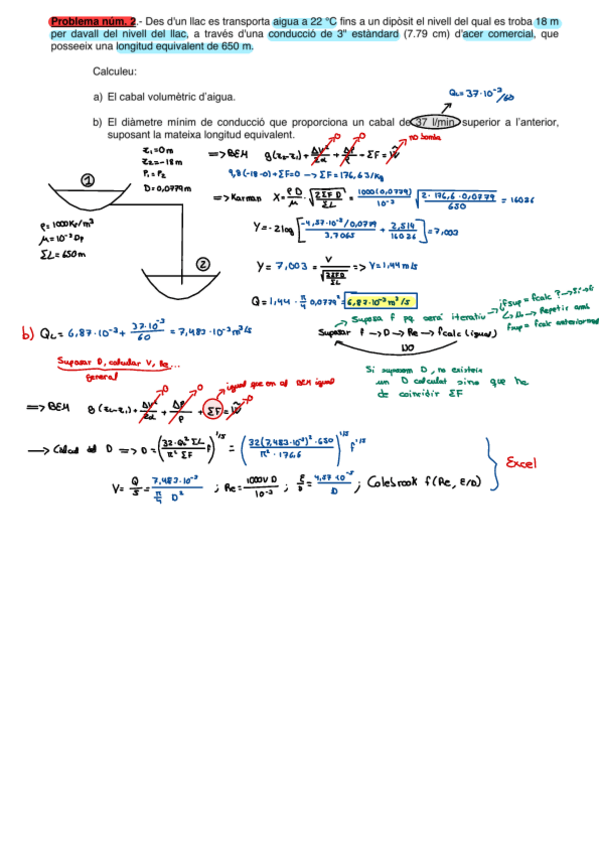 Problema núm. 2.- Des d'un llac es transporta aigua a 22 °C fins a un dipòsit el nivell del qual es troba 18 m
per davall del nivell del llac, a través d'una conducció de 3" estàndard (7.79 cm) d'acer comercial, que
posseeix una longitud equivalent de 650 m.
Calculeu:
a) El cabal volumètric d'aigua.
QL = 37·10⁻³/60
b) El diàmetre mínim de conducció que proporciona un cabal de 37 l/min superior a l'anterior,
suposant la mateixa longitud equivalent.
no bomba
z₁=0m
z₂=-18m
P₁=P₂
D=0,0779m
=> BEM g(z₂-z₁)+ΔV²/2α+ΔP/ρ+ΣF=Ŵ
9,8(-18-0)+ΣF=0 → ΣF=176,63 J/kg
① ②
ρ=1000kg/m³
μ=10⁻³
ΣL=650m
=> Karman X=ρD/μ·√(2ΣFD/ΣL)=1000(0,0779)/10⁻³ √(2·176,6·0,0779/650) = 16026
Y=-2log[4,57·10⁻⁵/0,0779/3,7065+2,514/16026]=7,003
Y=7,003=V/√(2ΣFD/ΣL) => V=1,44 m/s
Q=1,44·π/4·0,0779²=6,87·10⁻³m³/s
b) QL=6,87·10⁻³+37·10⁻³/60=7,483·10⁻³m³/s
Suposa f pq serà iteratiu
if sup = f calc ? → Sí → fi
No → Repetir amb
f sup = f calc anteriorment
Suposar f → D → Re → f calc (igual)
NO
Suposar D, calcular V, Re...
general
Si suposem D, no existeix
un D calculat sino que ha
de coincidir ΣF
igual que en el BEM igual
=> BEM g(z₂-z₁)+ΔV²/2α+ΔP/ρ+ΣF=Ŵ
→ Calcul del D => D=(32·QL²ΣL/π²ΣF f)^1/5=(32(7,483·10⁻³)²·650/π²·176,6)^1/5 f^1/5
V=Q/S=7,483·10⁻³/π/4 D² ; Re=1000VD/10⁻³ ; ε/D=4,57·10⁻⁵/D ; Colebrook f(Re, ε/D)
Excel